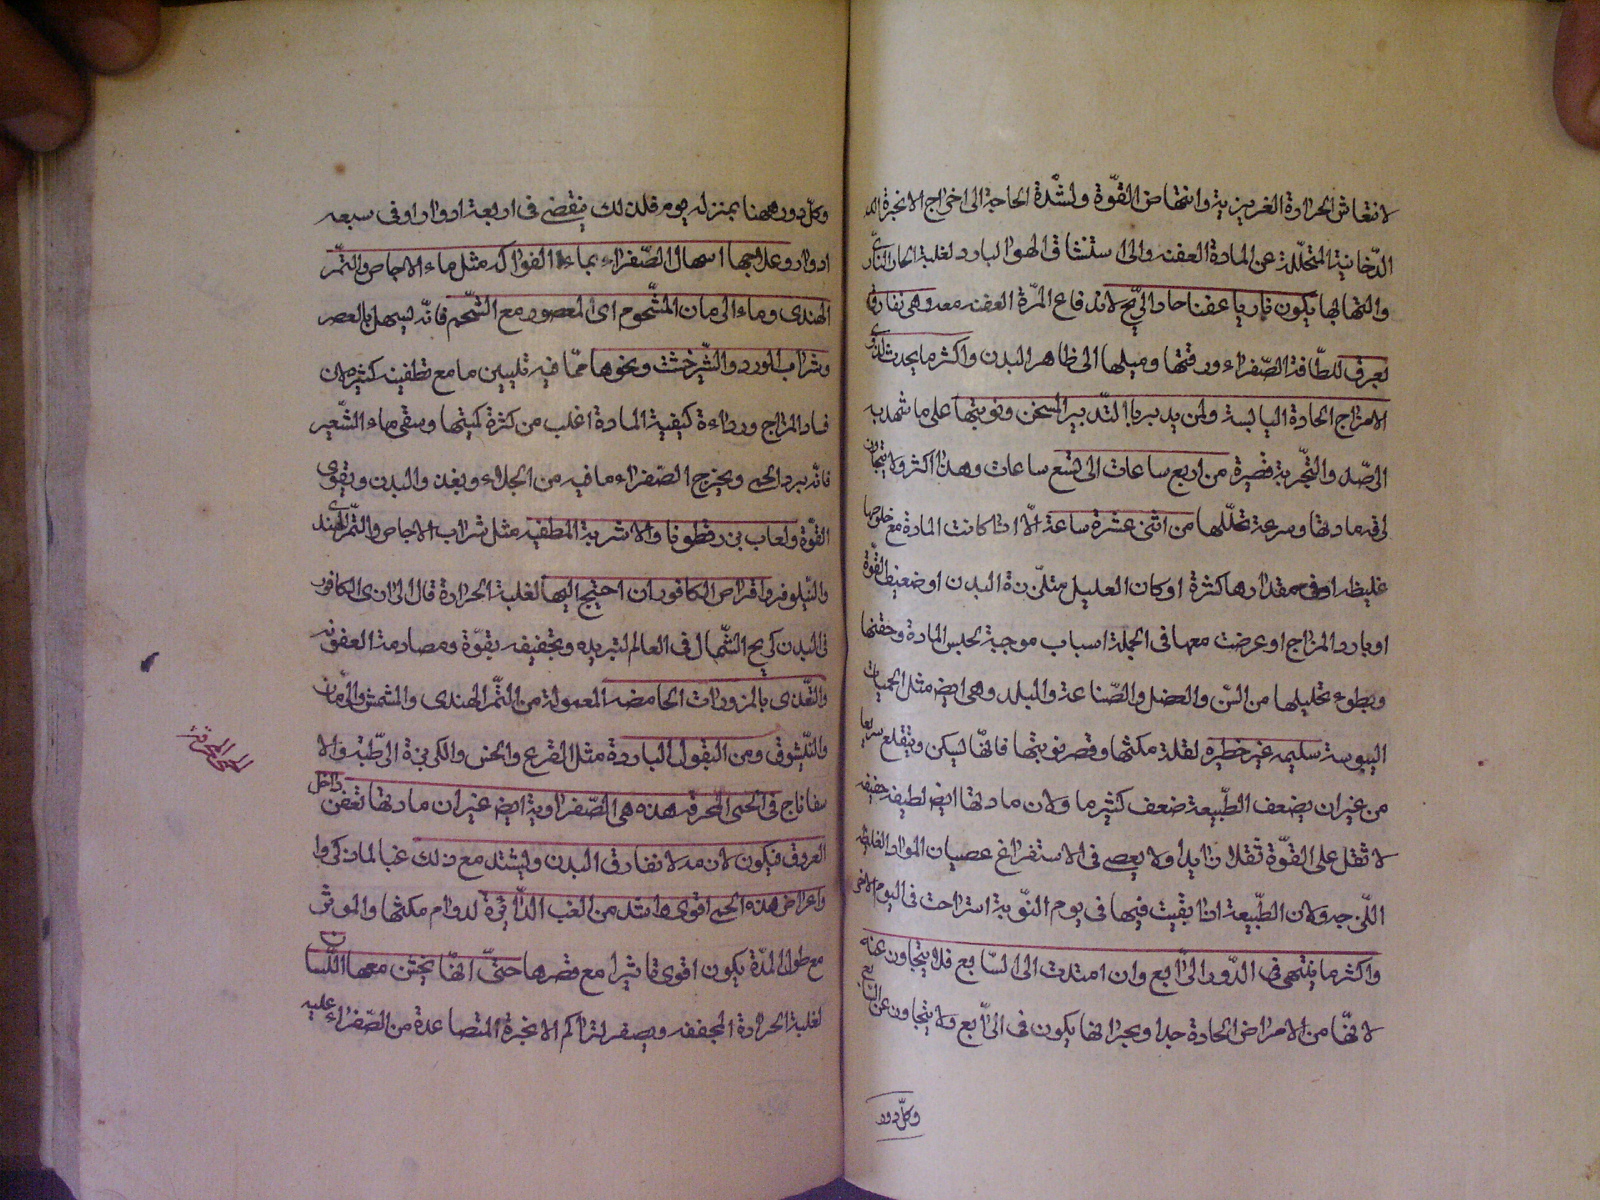 لانتعاش الحرارة الغريزية وانتهاض القوّة ولشدّة الحاجة الى اخراج الابخرة
الدّخانية المتحلّلة عن المادة العفنه والى استنشاق الهوا البارد لغلبة الحار النارّى
والتهابها يكون ناريا عفنا حاد الرّيح لاندفاع المرّة العفنه معه وهى تفارق
بعرق للطافة الصّفراء ورقتها وميلها الى ظاهر البدن واكثر ما يحدث لذوى
الامزاج الحادة اليابسة ولمن يدبر بالتّدبير المسخن ونوبتها على ما شهد به
الرّصد والتّجربة قصيرة من اربع ساعات الى تسع ساعات وهذا اكثر ولا يتجاوز
لرقه مادتها وسرعة تحلّلها من اثنى عشرة ساعة الّا اذا كانت المادة مع خلوصها
غليظه او فى مقدارها كثرة او كان العليل متلزّزة البدن او ضعيف القوّة
او بارد المزاج او عرضت معها فى الجملة اسباب موجبة لحبس المادة وحقنها
وبطوء تحليلها من السّن والفصل والصّناعة والبلد وهى ايض مثل الحميات
اليبوسة سليمه غير خطيره لقلة مكثها وقصر نوبتها فانهّا تسكن وتقلع سريعا
من غير ان يضعف الطّبيعة ضعف كثير ما ولان مادتها ايض لطيفة خفيفه
لا تثقل على القوّة ثقلا زايدا ولا يعصى فى الاستفراغ عصيان المواد الغليظه
اللّزجه ولان الطّبيعة اذا بقيت فيها فى يوم النّوبة استراحت فى اليوم الاخر
واكثر ما ينتهى فى الدّور الرّابع وان امتدت الى السّابع فلا يتجاوز عنه
لانهّا من الامراض الحادة جدا وبحرانها يكون فى الرّابع ولا يتجاوز عن السّابع
وكلّ دور
وكلّ دور ههنا بمنزله يوم فلذلك ينقضى فى اربعة ادوار او فى سبعه
ادوار وعلاجها اسهال الصّفراء بماء الفواكه مثل ماء الاجاص والتّمر
الهندى وماء الرمان المشّحوم اى المعصور مع الشّحم فانّه يسهل بالعصر
وشراب الورد والشّيرخشت ونحوها ممّا فيه تليين ما مع تطفيه كثير لان
فساد المزاج ورداءة كيفية المادة اغلب من كثرة كميتها وسقى ماء الشّعير
فانّه يبرد الحمى ويخرج الصّفراء ما فيه من الجلاء ويغذو البدن ويقوى
القوّة ولعاب بزر قطونا والاشربة المطفيه مثل شراب الاجاص والتّمر الهندى
والنّيلوفر واقراص الكافور ان احتيج اليها لغلبة الحرارة قال الرازى الكافور
فى البدن كريح الشّمال فى العالم لتبريده وتجفيفه بقوّة ومصادمة العفونه
والتّغذى بالمزورات الحامضه المعمولة من التّمر الهندى والمشمش والرّمان
والنّيشوق ومن البقول الباردة مثل القرع والخس والكزبرة الرّطبة والا
سفاناج فى الحمى المحرقه هذه هى الصّفراوية ايض غير ان مادتها تعفن داخل
العروق فيكون لازمه لا تفارق البدن ويشتد مع ذلك غبا لما ذكروا
واعراض هذه الحمى اقوى واشد من الغب الدّائرة لدوام مكثها والموثّر
مع طول المدّة يكون اقوى تاثيرا مع قصرها حتىّ انهّا يخشن معها اللّسان
لغلبة الحرارة المجففه ويصفر لتراكم الابخرة المتصاعدة من الصّفراء عليه
الحمى المحرقة